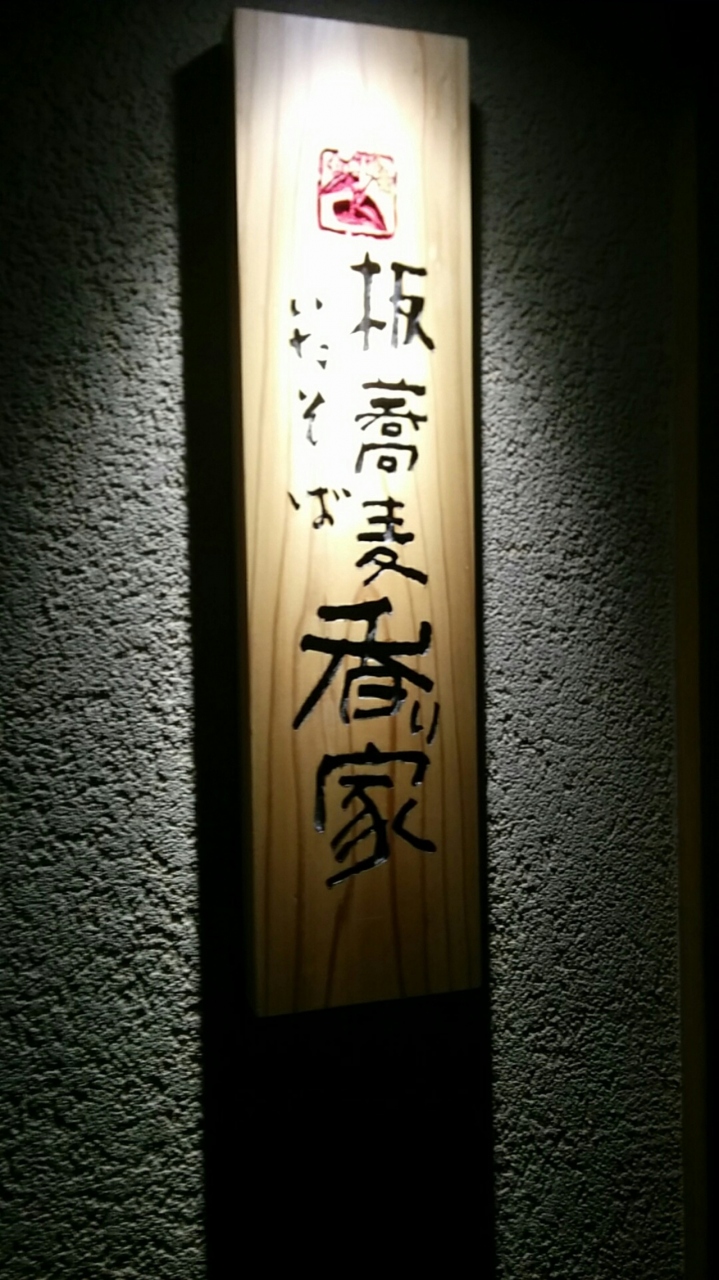 板蕎麦香り家
いたそば